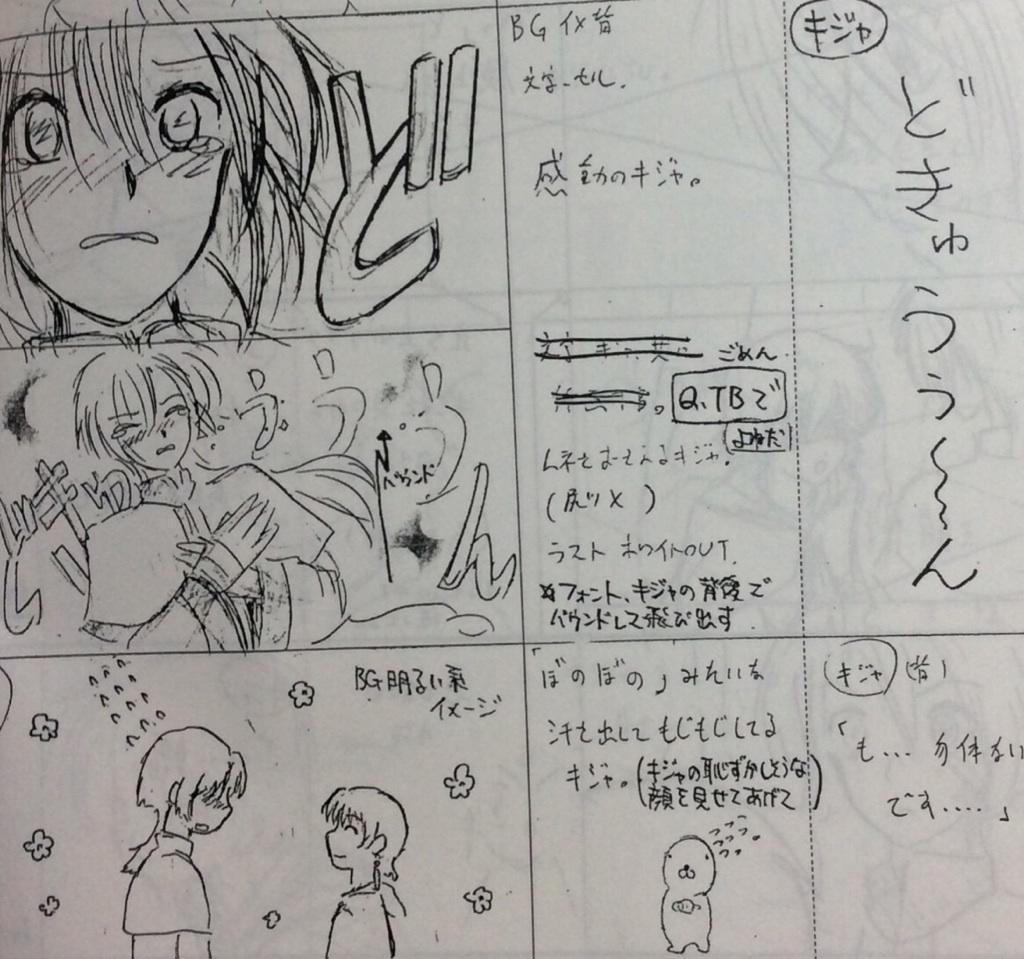 ど
BG イメ背
文字-セル.
感動のキジャ。
キジャ
どきゅうう〜〜ん
ぎゅ
うううん
バウンド
ごめん.
Q.TBで
ムネをおさえるキジャ.
(尻ツメ)
ラスト ホワイトOUT.
※フォント、キジャの背後で
バウンドして飛び出す.
BG明るい系
イメージ
「ぼのぼの」みたいな
汗を出してもじもじしてる
キジャ。(キジャの恥ずかしそうな
顔を見せてあげて)
キジャ
「も…. 勿体ない
です…..」